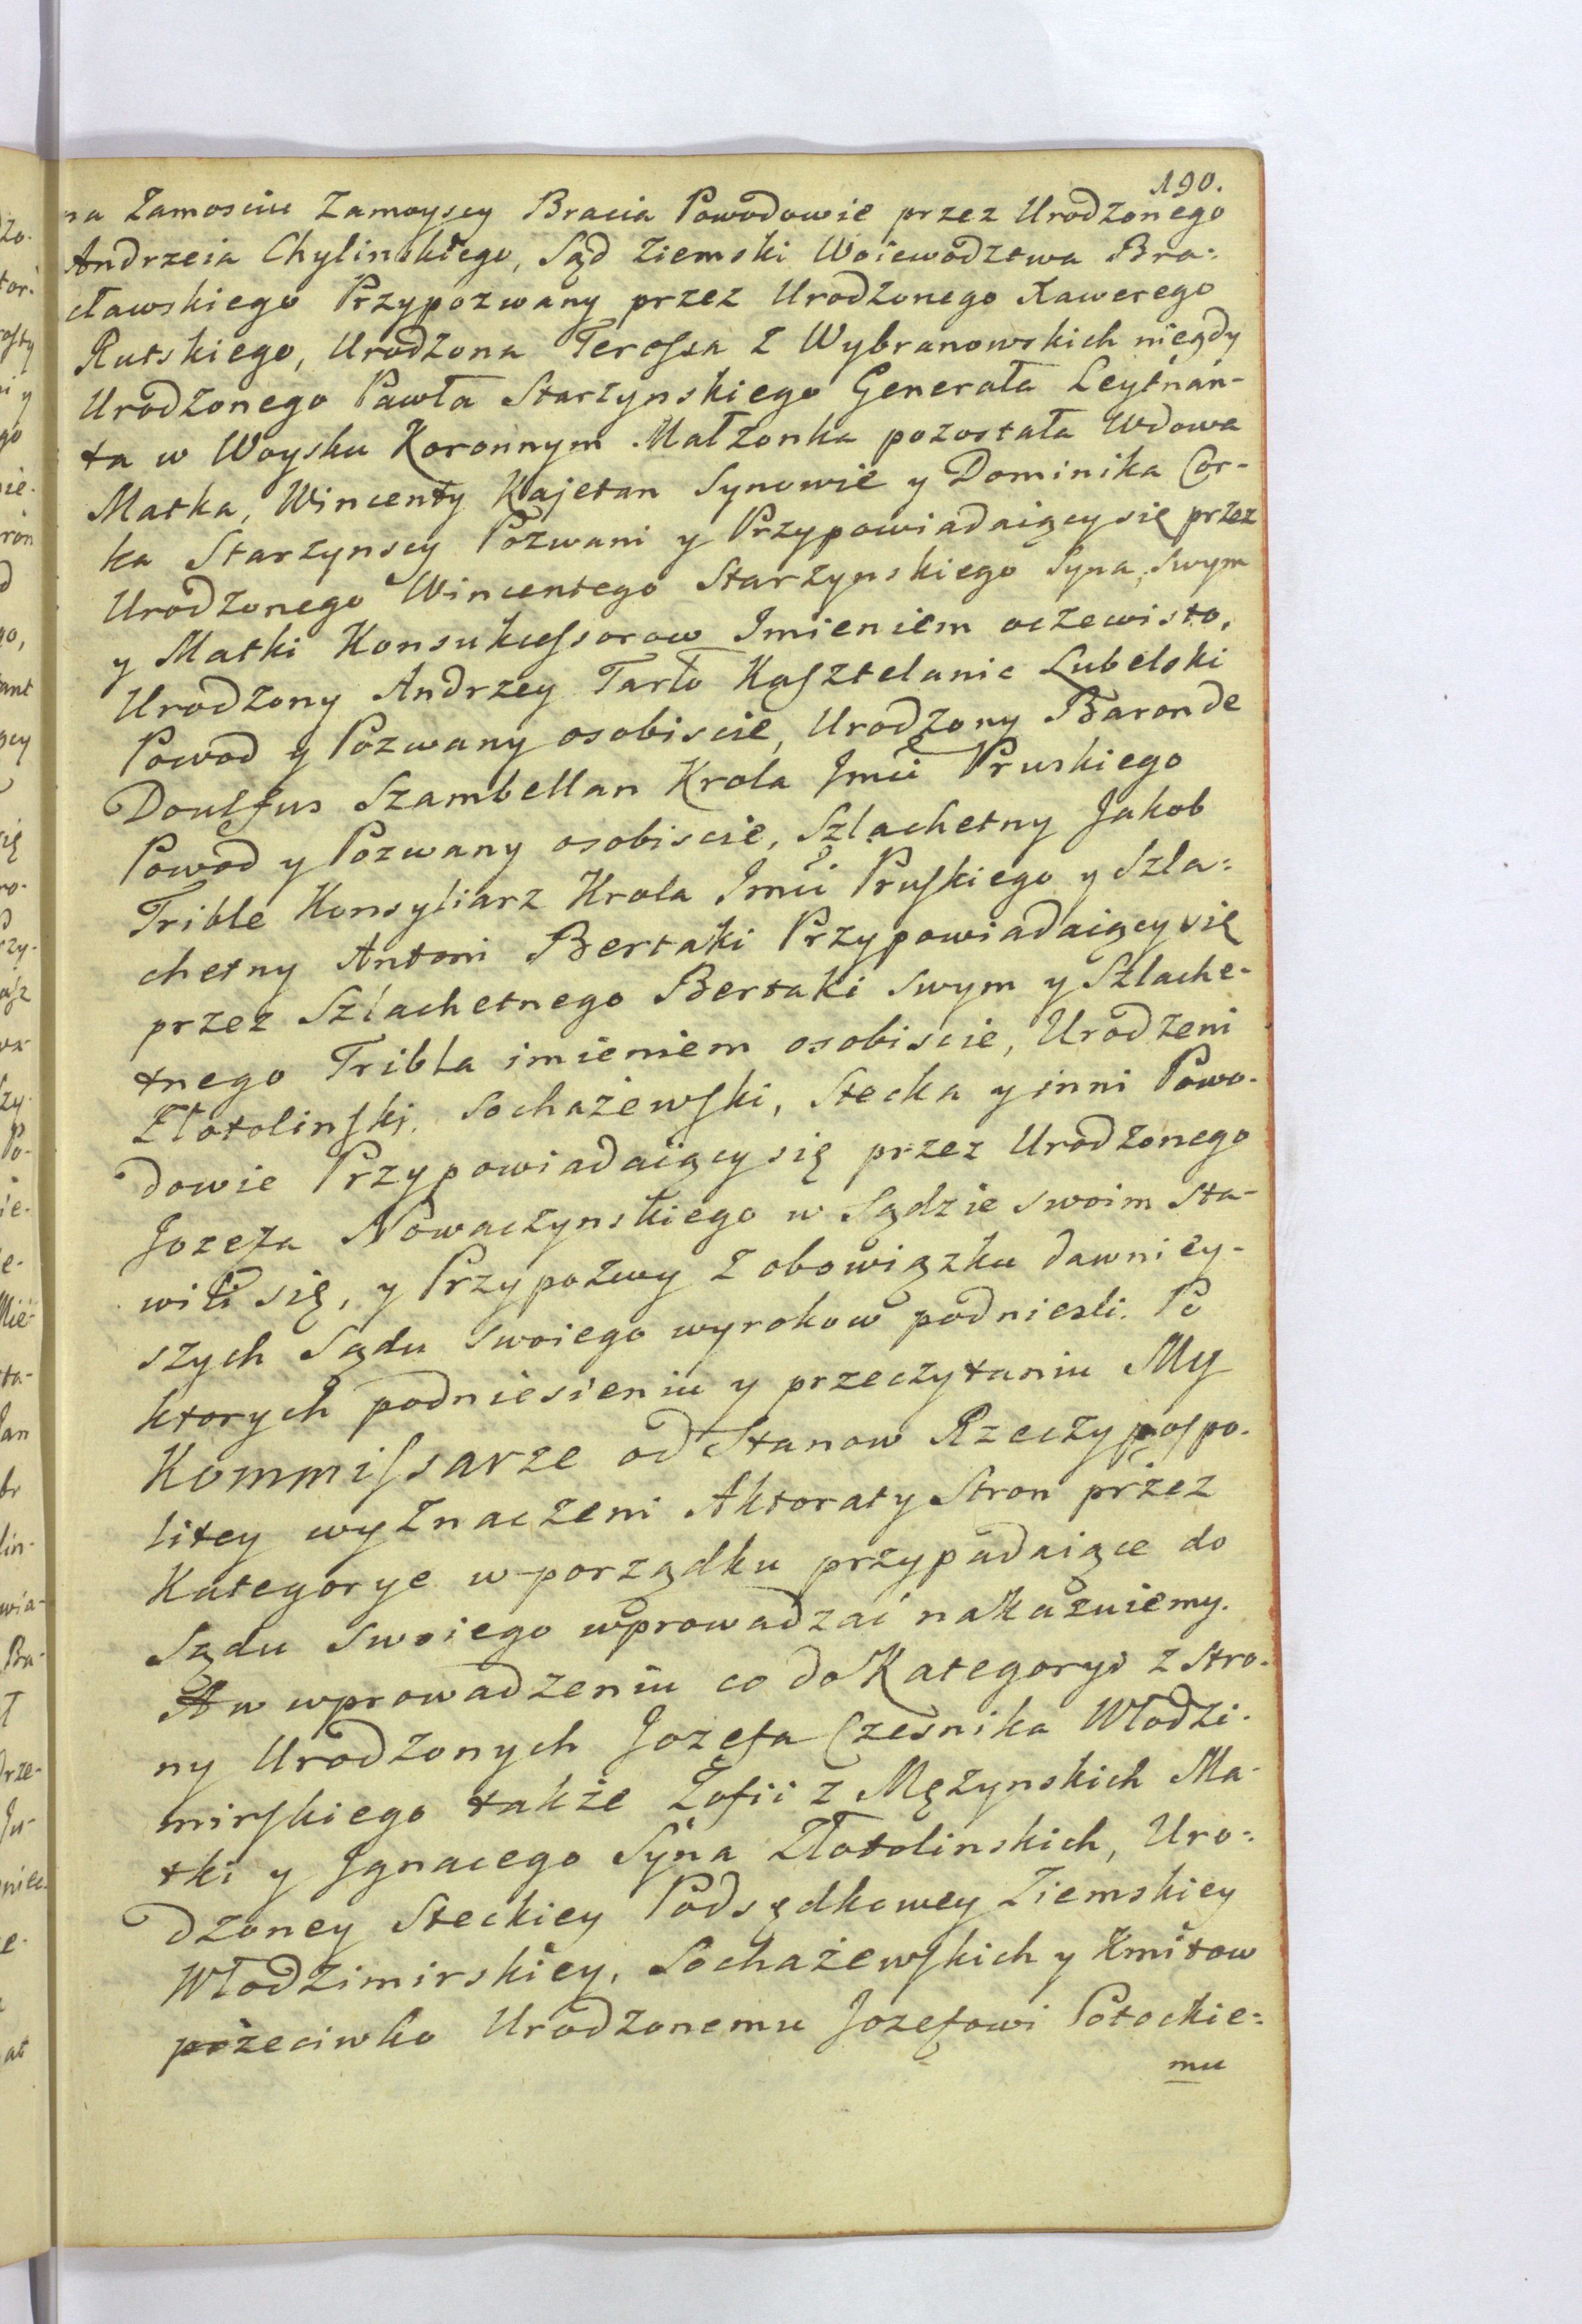 190.
na Zamosciu Zamoyscy Bracia Powodowie przez Urodzonego
Andrzeia Chylinskiego, Sąd Ziemski Woiewodztwa Bra:
cławskiego Przypozwany przez Urodzonego Xawerego
Rutskiego, Urodzona Teressa z Wybranowskich niegdy
Urodzonego Pawła Starzynskiego Generała Leytnan-
ta w Woysku Koronnym Małżonka pozostała Wdowa
Matka, Wincenty Kajetan Synowie y Dominika Cor-
ka Starzynscy Pozwani y Przypowiadaiący się przez
Urodzonego Wincentego Starzynskiego Syna, swym
y Matki Konsukcessorow Imieniem oczewisto,
Urodzony Andrzey Tarło Kasztelanic Lubelski
Powod y Pozwany osobiscie, Urodzony Baron de
Doulfus Szambellan Krola Jmci Pruskiego
Powod y Pozwany osobiscie, Szlachetny Jakob
Trible Konsyliarz Krola Jmci Pruskiego y Szla:
chetny Antoni Bertaki Przypowiadaiący się
przez Szlachetnego Bertaki swym y Szlache-
tnego Tribla imieniem osobiscie, Urodzeni
Złotolinski, Sochażewski, Stecka y inni Powo-
dowie Przypowiadaiący się przez Urodzonego
Jozefa Nowaczynskiego w Sądzie swoim sta-
wili się, y Przypozwy z obowiązku dawniey-
szych Sądu swoiego wyrokow podniesli. Po
ktorych podniesieniu y przeczytaniu My
Kommissarze od Stanow Rzeczypospo-
litey wyznaczeni Aktoraty Stron przez
Kategorye w porządku przypadaiące do
Sądu swoiego wprowadzać nakazuiemy.
A w wprowadzeniu co do Kategoryi z stro-
ny Urodzonych Jozefa Czesnika Włodzi-
mirskiego także Zofii z Mężynskich Ma-
tki y Jgnacego Syna Złotolinskich, Uro:
dzoney Steckiey Podsędkowey Ziemskiey
Włodzimirskiey, Sochażewskich y Kmitow
przeciwko Urodzonemu Jozefowi Potockie:
mu